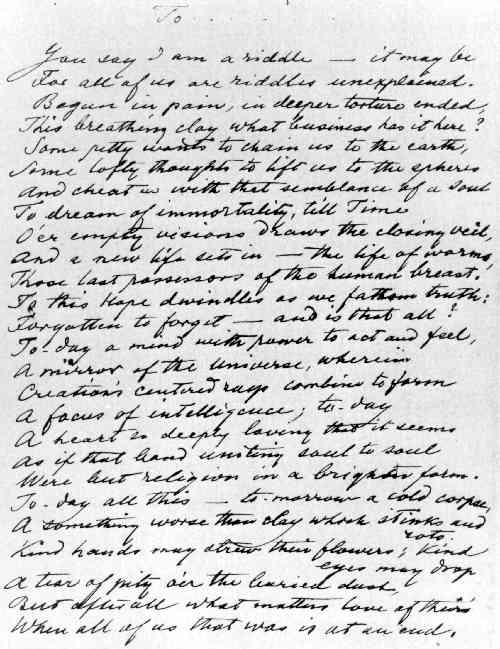 To . . . .
You say I am a riddle — it may be
For all of us are riddles unexplained.
Begun in pain, in deeper torture ended,
This breathing clay what business has it here?
Some petty wants to chain us to the earth,
Some lofty thoughts to lift us to the spheres
And cheat us with that semblance of a soul
To dream of immortality, till Time
O'er empty visions draws the closing veil,
And a new life sets in — the life of worms,
Those last possessors of the human breast.
To this Hope dwindles as we fathom truth:
Forgotten to forget — and is that all?
To-day a mind with power to act and feel,
A mirror of the Universe, wherein
Creation's centered rays combine to form
A focus of intelligence; to-day
A heart so deeply loving that it seems
As if that band uniting soul to soul
Were but religion in a brighter form.
To-day all this — to-morrow a cold corpse,
A something worse than clay which stinks and
rots.
Kind hands may strew their flowers; kind
eyes may drop
A tear of pity o'er the buried dust,
But after all what matters love of theirs
When all of us that was is at an end.